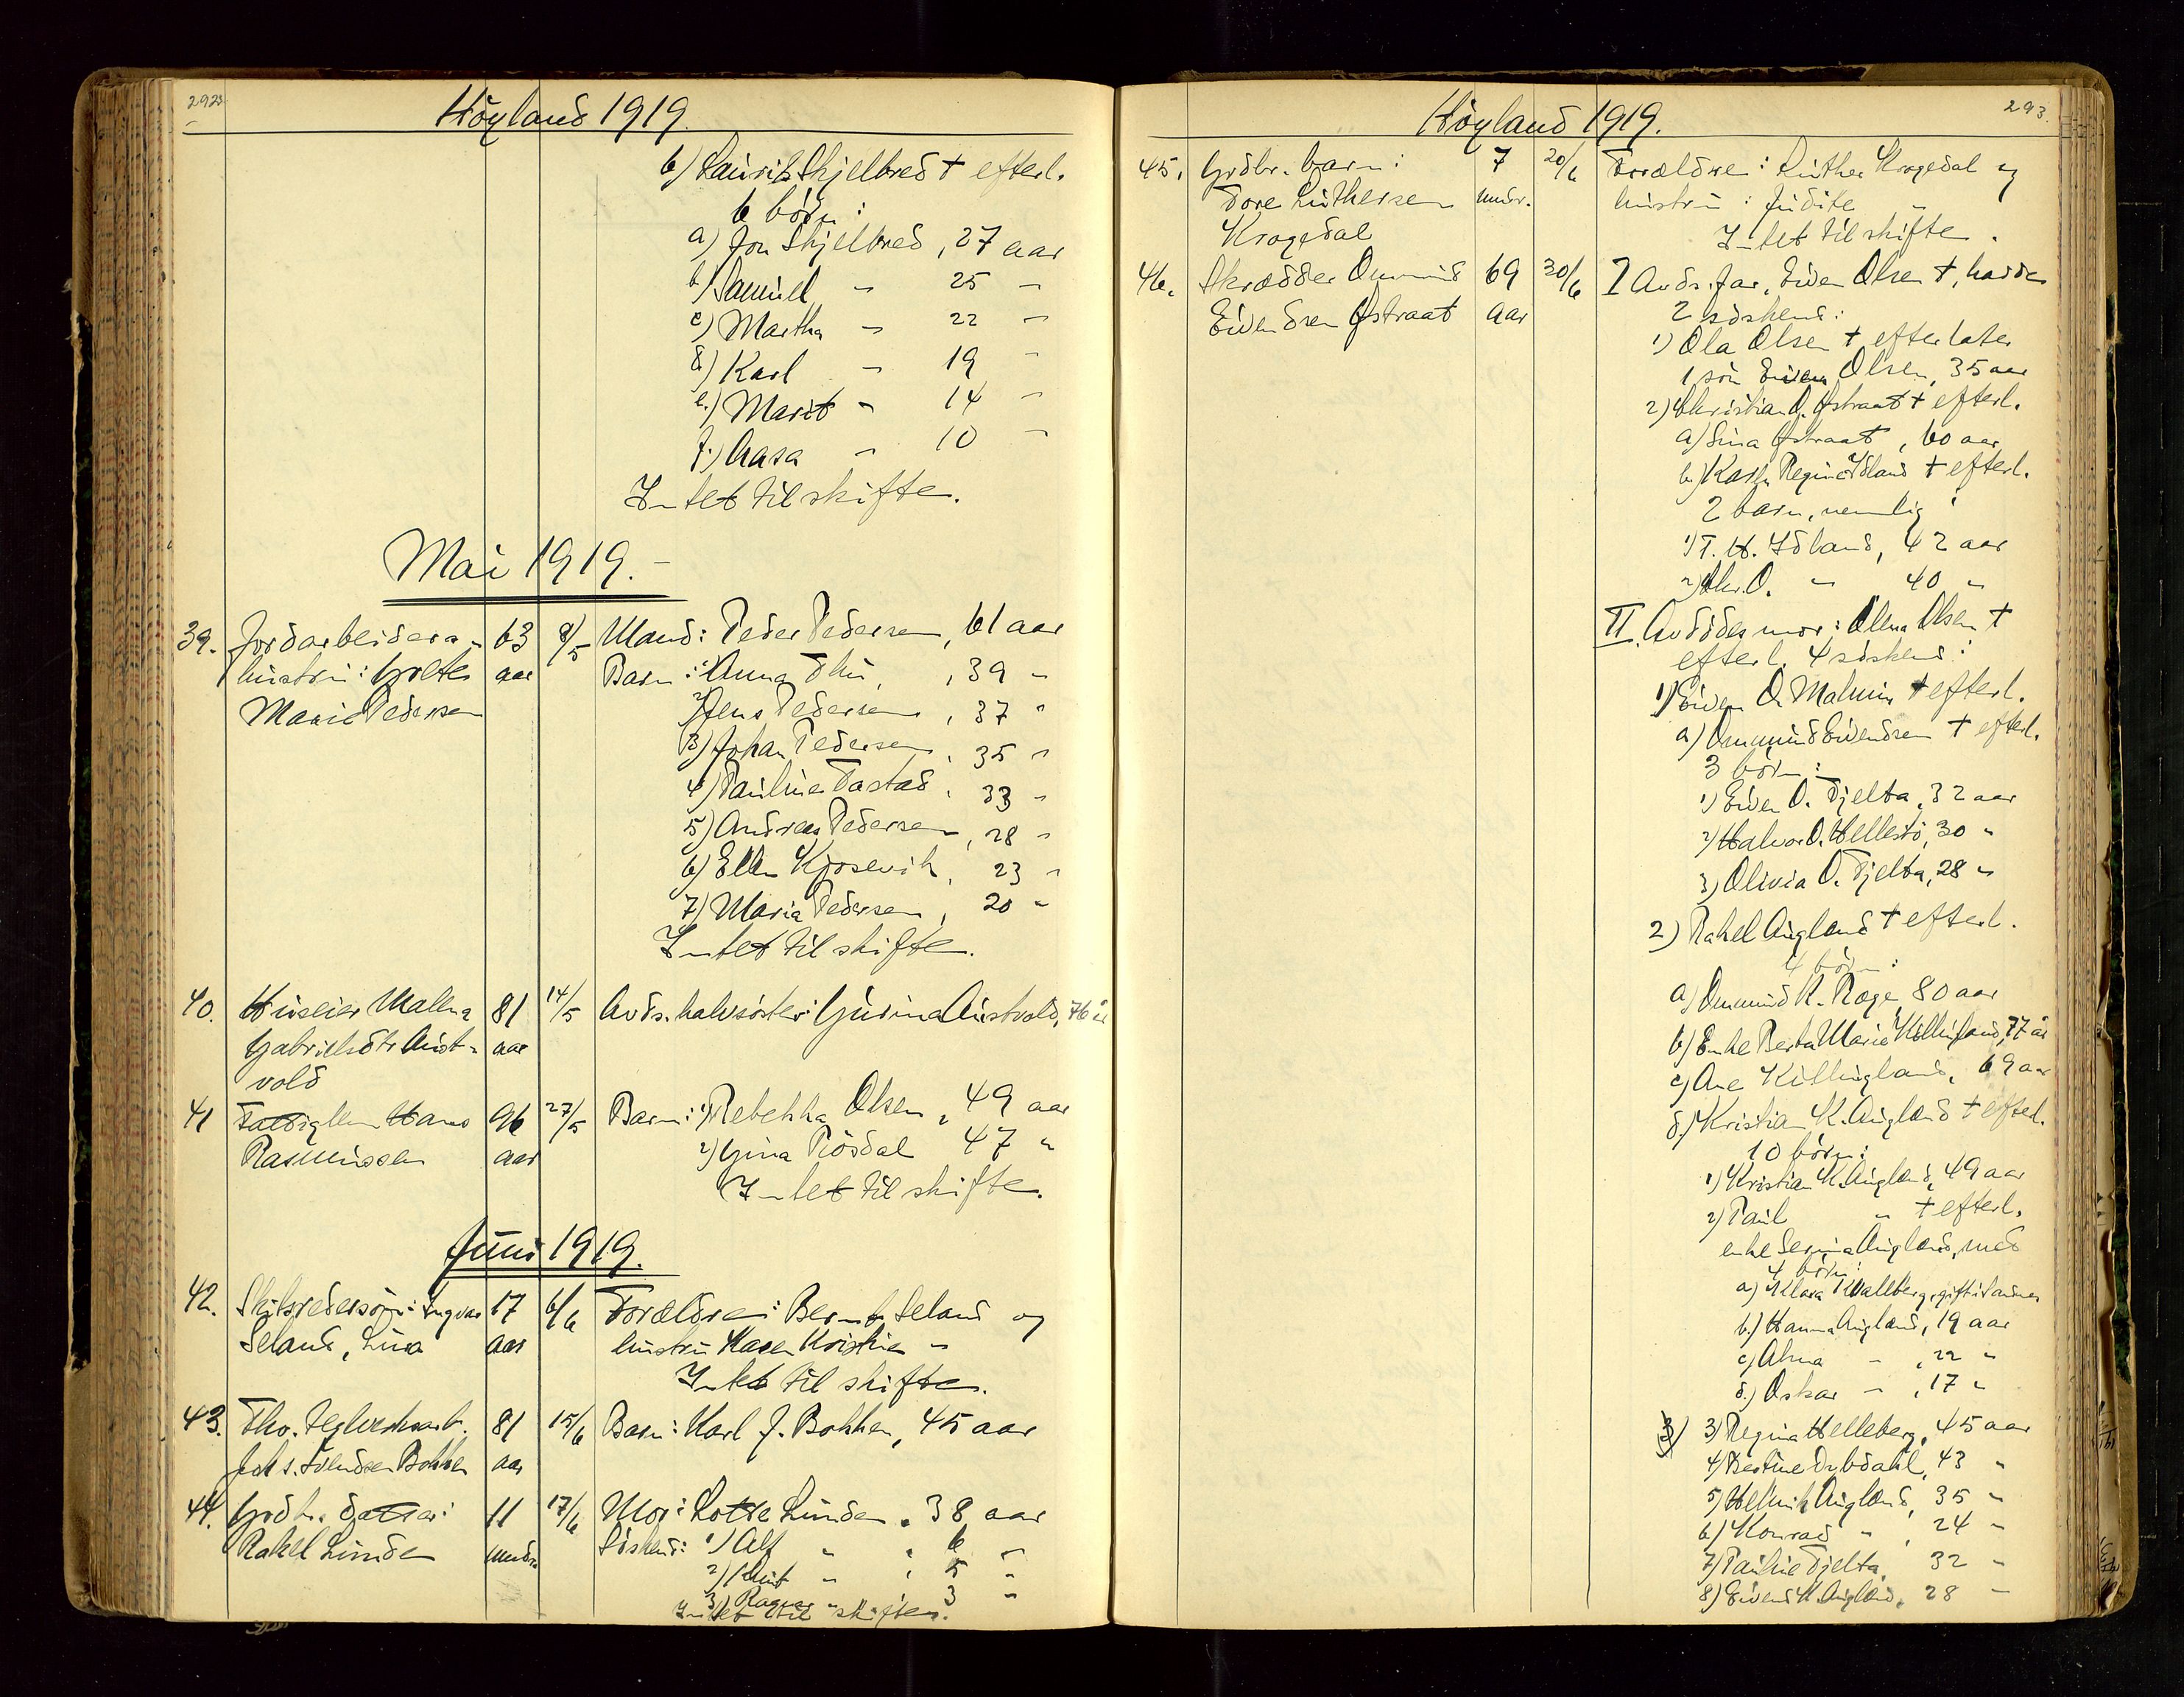 292
Höyland 1919.
b) Laurits Skjelbred † efterl.
6 börn:
a) Jon Skjelbred, 27 aar
b) Samuel " 25 "
c) Martha " 22 "
d) Karl " 19 "
e.) Marit " 14 "
f.) Aasa " 10 "
Intet til skifte.
Mai 1919.-
39. Jordarbeiders- 63 8/5 Mand: Peder Pedersen, 61 aar
hustru: Grete aar Barn: 1) Anna Thu, 39 "
Marie Pedersen 2) Jens Pedersen, 37 "
3) Johan Pedersen, 35 "
4) Pauline Tastad, 33 "
5) Andreas Pedersen, 28 "
6) Ellen Kjosevik, 23 "
7) Maria Pedersen, 20 "
Intet til skifte.
40. Huseier Mallena 81 14/5 Avds. halvsöster: Gurina Austvold, 76 år
Gabrielsdtr Aust- aar
vold
41 Fattiglem Hans 96 27/5 Barn: 1) Rebekka Olsen, 49 aar
Rasmussen aar 2) Gina Rösdal 47 "
Intet til skifte.
Juni 1919.
42. Skibsredersön: Ingvar 17 6/6 Forældre: Bernt Seland og
Seland, Lura aar hustru Karen Kristine "
Intet til skifte.
43. Fho. Teglverksarb. 81 15/6 Barn: Karl J. Bokken, 45 aar
Johs. Svendsen Bokken aar
44. Grdbr. datter: 11 17/6 Mor: Lotte Lunden, 38 aar
Rakel Lunde mndr. Söskend: 1) Alf " , 6 "
2) Knut " , 5 "
3) Ragnar " 3 "
Intet til skifte.
Höyland 1919.
293.
45. Grdbr. barn: 7 20/6 Forældre: Luther Krogedal og
Tore Luthersen mndr. hustru: Judite "
Krogedal Intet til skifte.
46. Skrædder Ommund 69 30/6 I Avds. far, Eiven Olsen †, hadde
Eivendsen Østraat aar 2 söskend:
1) Ola Olsen † efterlater
1 sön Eiven Olsen, 35 aar
2) Christian O. Østraat † efterl.
a) Sina Østraat, 60 aar
b) Karen Regine Ydland † efterl.
2 barn, nemlig:
1) T. H. Ydland, 42 aar
2) Chr. O. " 40 "
II. Avdödes mor: Olena Olsen †
efterl. 4 söskend:
1) Eiven O. Malmin † efterl.
a) Ommund Eivendsen † efterl.
3 börn:
1) Eiven O. Tjelta, 32 aar
2) Halvor O. Hellestö, 30 "
3) Olivia O. Tjelta, 28 "
2) Rakel Augland † efterl.
4 börn:
a) Ommund K. Rege, 80 aar
b) Enke Berta Marie Killingland, 77 år
c) Ane Killingland, 69 aar
d.) Kristian K. Augland † efterl.
10 börn:
1) Kristian K. Augland, 49 aar
2) Paul " † efterl.
enke Serina Augland, med
4 börn:
a) Klara Kvalleberg, gift i Sandnes
b.) Hanna Augland, 19 aar
c) Alma " , 22 "
d.) Oskar " , 17 "
3) 3) Regina Helleberg, 45 aar
4) Bertine Dybdahl, 43 "
5) Helmik Augland, 35 "
6) Konrad " , 24 "
7) Pauline Tjelta, 32 "
8) Eivend K. Augland, 28 "